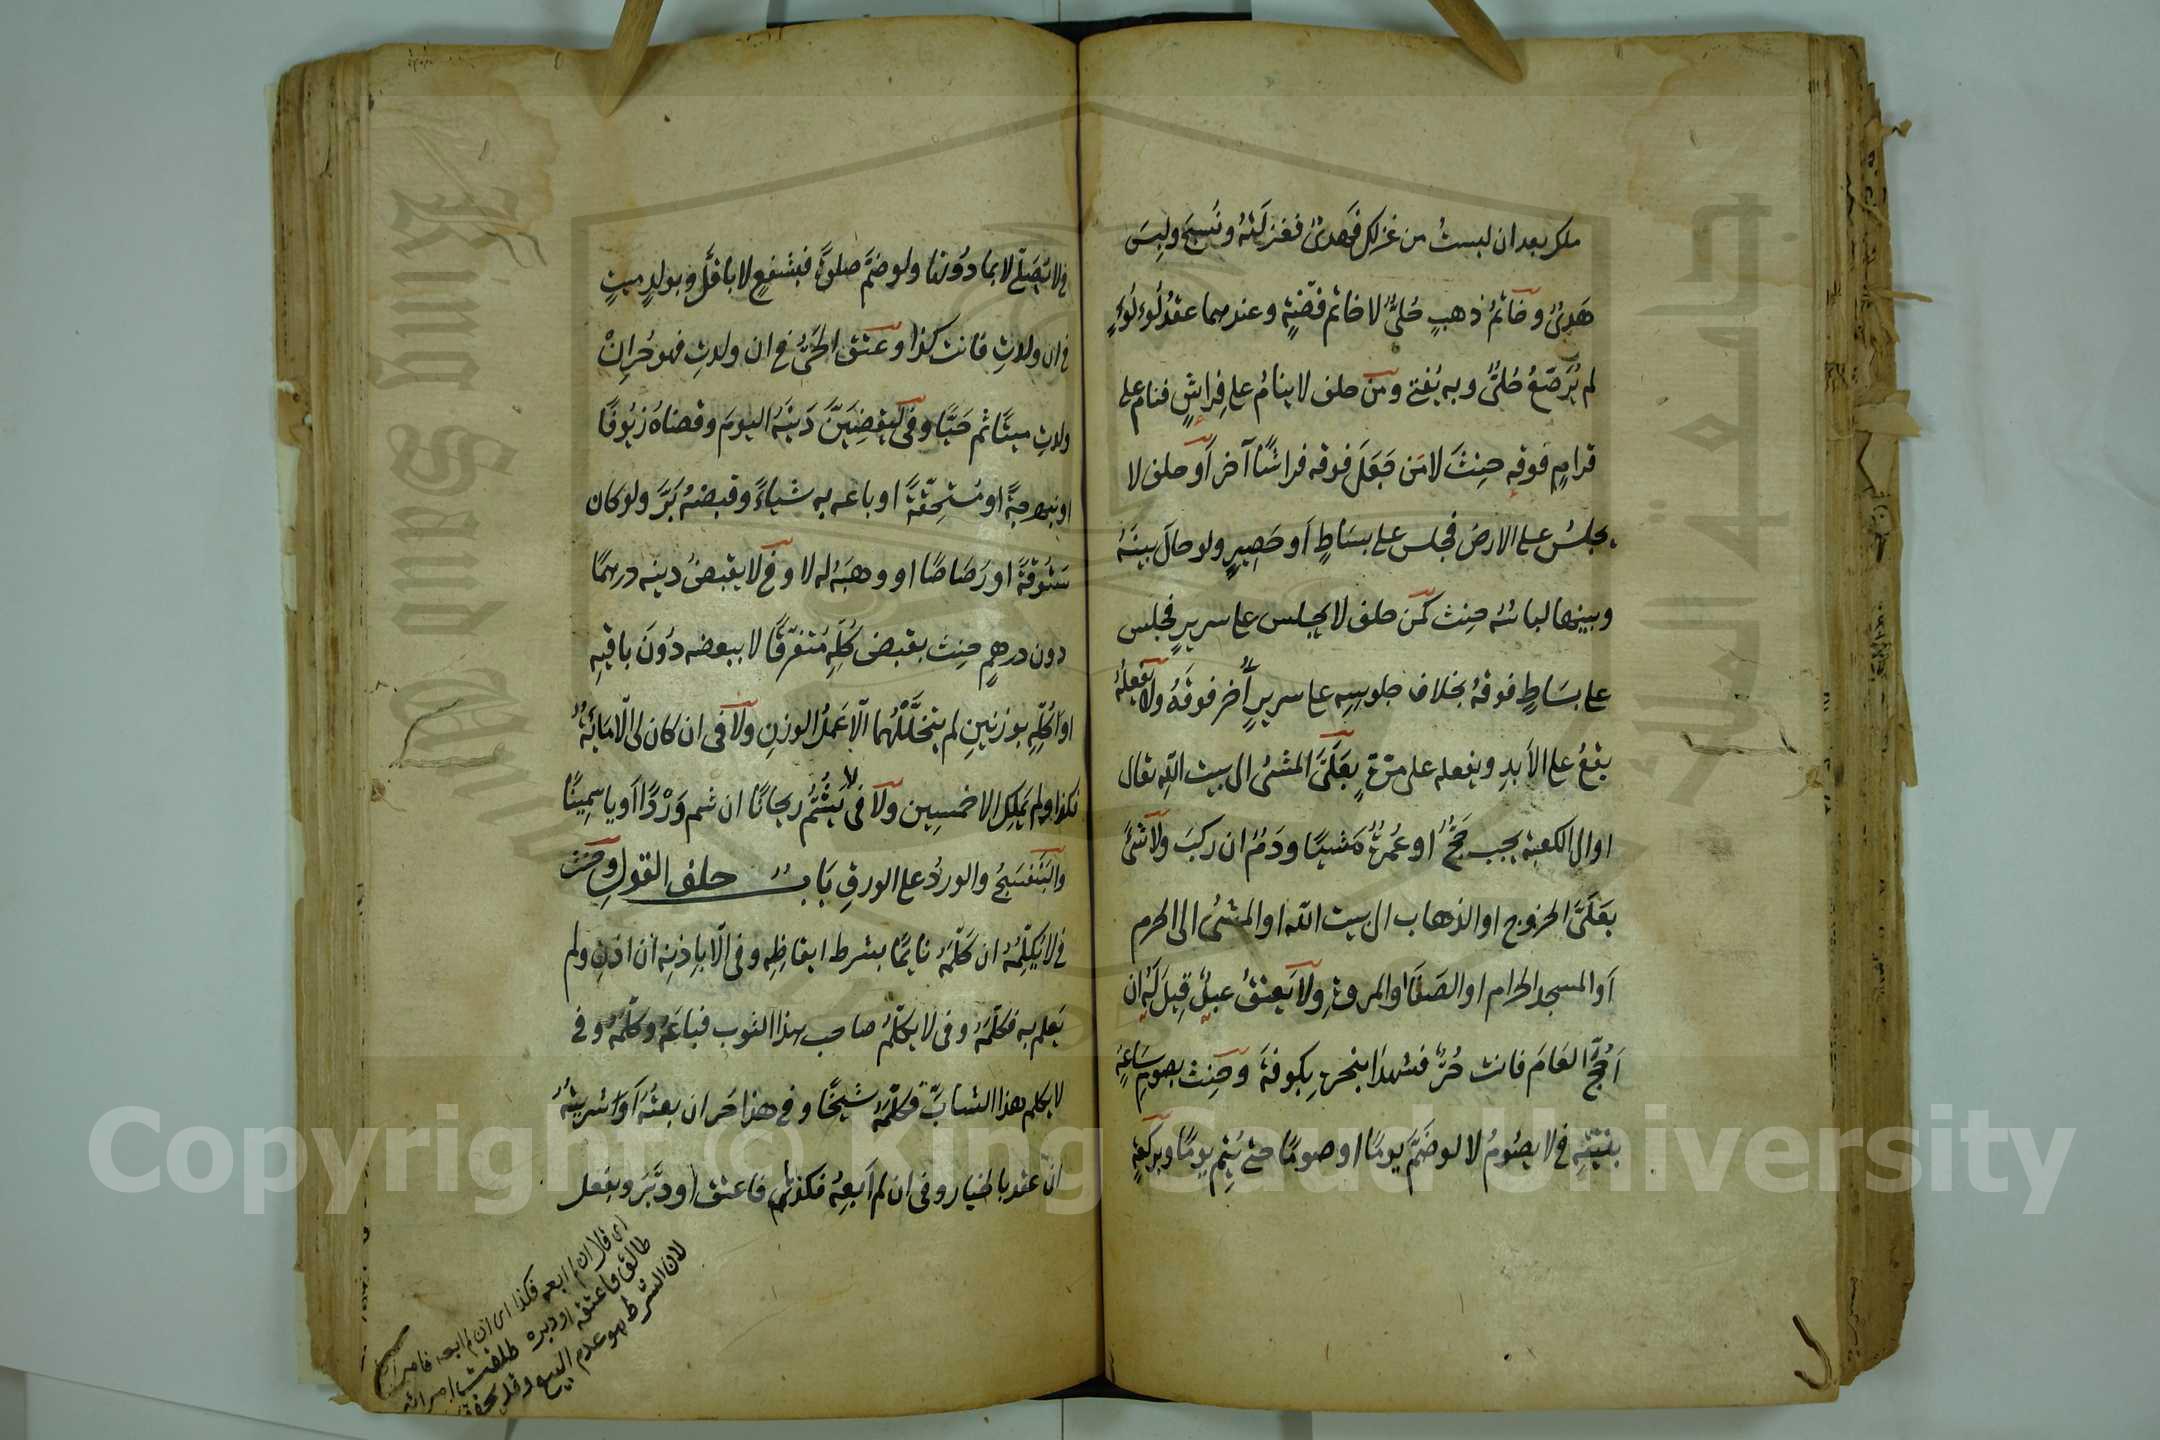 ملكه بعد ان لبست من غزلك فهدىٌ فغزلَتْهُ ونُسِجَ ولبِسَ
هَدىٌ وخاتمُ ذهبٍ حُلىٌّ لا خاتم فضّةٍ وعندهما عقدُ لُوءلُوءٍ
لم يُرَصّعْ حُلىٌّ وبه يُفتى ومن حلف لا ينامُ على فِراشٍ فنام على
قرامٍ فوقه حنِثَ لا من جَعَلَ فوقه فراشًا آخر أو حلف لا
يجلسُ على الارض فجلس على بسَاطٍ أو حَصِيرٍ ولو حال بينَهُ
وبينها لباسُهُ حنِث كمَن حلف لا يجلس على سريرٍ فجلس
على بسَاطٍ فوقهُ بخلاف جلوسِه على سريرٍ آخر فوقَهُ ولا يفعلُهُ
يقعُ على الأبدِ ويفعله على مرّةٍ بعَلَىَّ المشىُ الى بيت اللهِ تعالى
او الى الكعبة يجب حَجٌّ او عُمرةٌ مَشيًا ودَمٌ ان ركبَ ولا شئَ
بعَلَىَّ الخروج او الذهاب الى بيت الله او المشىُ الى الحرم
أو المسجد الحرام او الصَفَا والمروةِ ولا يَعتقُ عبدٌ قِيلَ لَهُ ان
لم أحُجّ العَامَ فانت حُرٌّ فشهدَا بنحرِه بكوفةَ وحَنِث بصومِ سَاعةٍ
بنيّتِهِ فى لا يصُومُ لا لو ضَمَّ يومًا او صومًا حتى يُتِم يومًا وبركعةٍ
فى لا يُصَلّى لا بما دُونها ولو ضَمَّ صلوةً فبشفعٍ لا باقلَّ وبولدٍ ميتٍ
فى ان ولدتِ فانت كذا وعتق الحىُّ فى ان ولدتِ فهو حُرٌ انْ
ولدتِ ميتًا ثم حَيًّا وفى ليقضِيَنَّ دَينَهُ اليومَ وقضاهُ زيُوفًا
او نبهرجةً او مُستحِقّةً او باعه به شياءً وقبضهُ بَرَّ ولو كان
سَتوقةً او رَصَاصًا او وهبَهُ له لا وفى لا يقبضُ دينه درهمًا
دون درهمٍ حنِث بقبض كُلِّهِ مُتفرّقًا لا ببعضه دُونَ باقيهِ
او كُلِّهِ بوزنينِ لم يتخلَّلْهُما الّا عَملُ الوزنِ ولا فى ان كان لى الّا مائةٌ
فكذا ولم يَملِك الا خمسِين ولا فى لا يَشُمُّ ريحانًا ان شم وَرْدًا أو ياسمِينًا
والبنَفسَجُ والوردُ على الورقِ بَابُ حلف القولِ وحنِثَ
فى لا يُكلّمُهُ ان كلّمَهُ نايمًا بشرط ايقاظِه وفى الّا باِذنِه ان اذن ولم
يَعلم به فكلّمَهُ وفى لا يُكلّمُ صاحب هذا الثوب فباعَهُ وكلّمَهُ وفى
لا يكلم هذا الشابَّ فكلّمهُ شيخًا وفى هذا حُر ان بعتُهُ أو اشتريتُهُ
ان عقد بالخيار وفى ان لم أبعهُ فكذا فاعتق او دبّرَ ويفعل
اى قال ان لم ابعه فكذا اى ان لم ابعه فامرأته
طالق فاعتقه او دبره طلقت امرأته
لان الشرط هو عدم البيع وقد تحقق